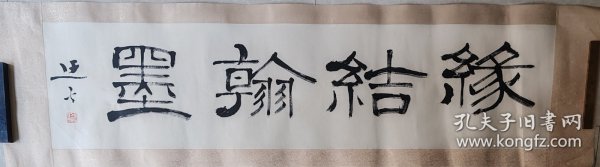 緣結翰墨
孔夫子旧书网
www.kongfz.com